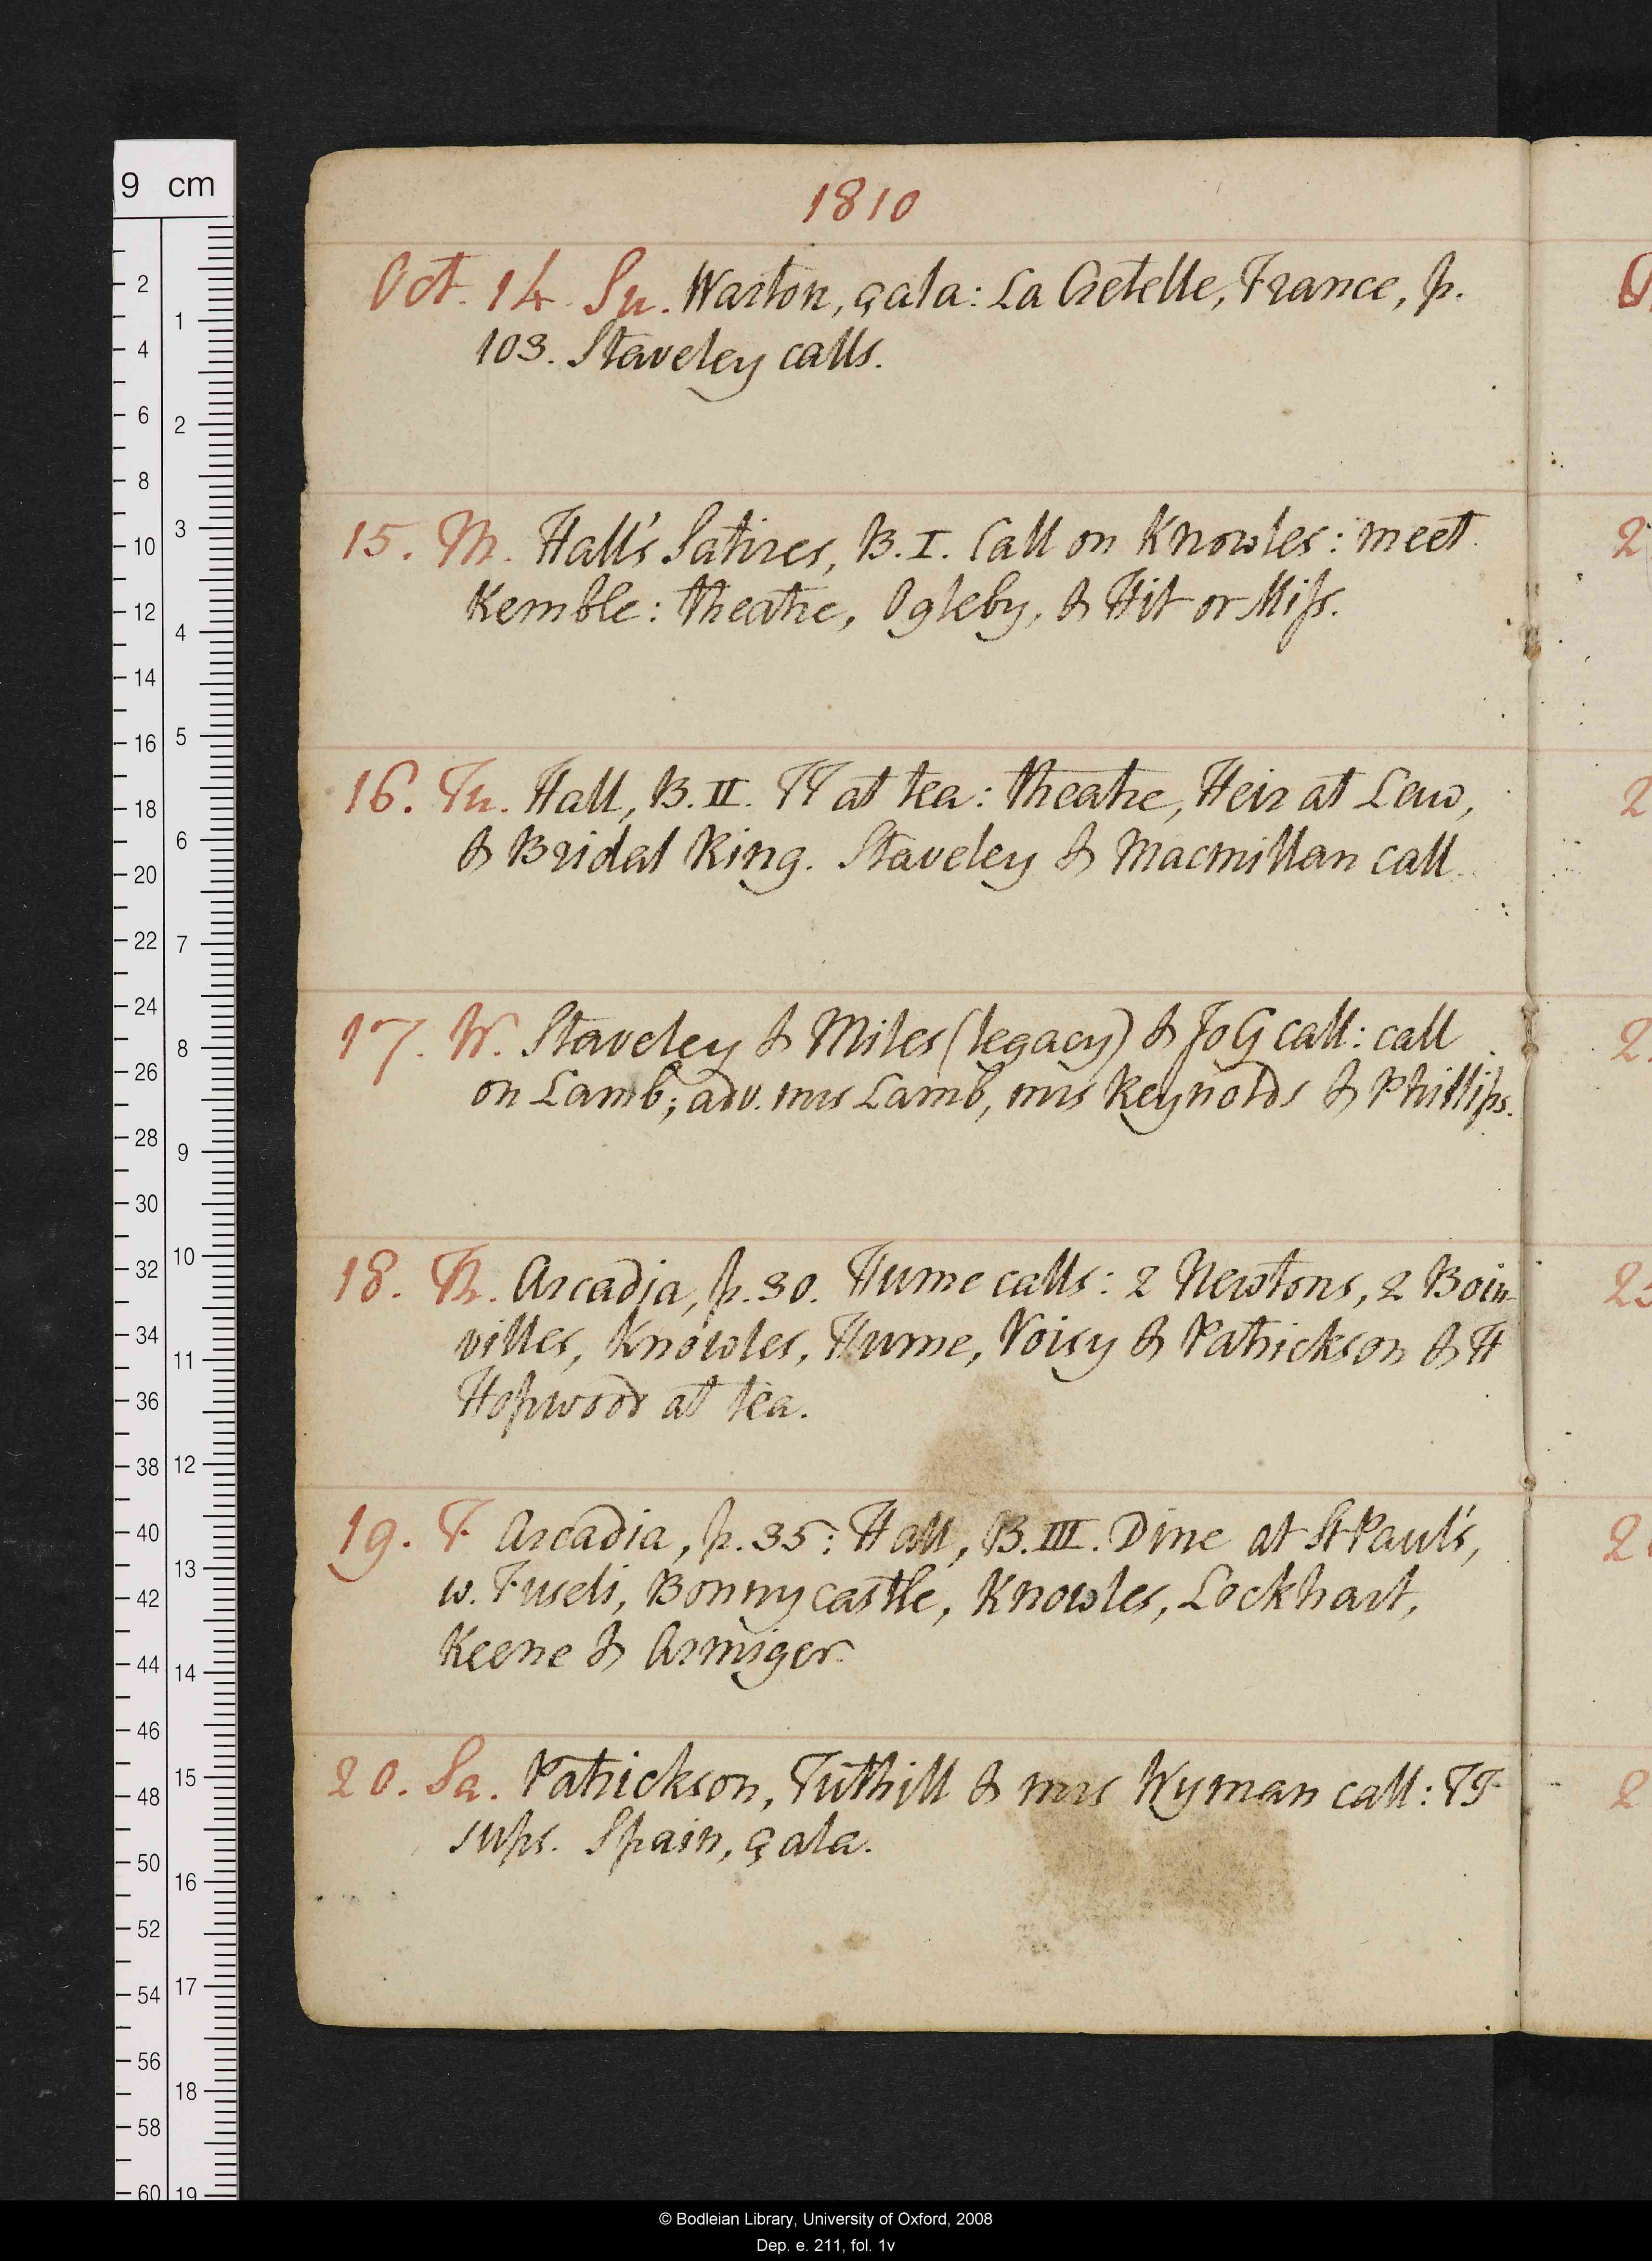 1810
Oct. 14. Su. Warton, çala: La Cretelle, France, p.
103. Staveley calls.
15. M. Hall's Satires, B. I. Call on Knowles: meet
Kemble: theatre, Ogleby, & Hit or Miss.
16. Tu. Hall, B. II. TT at tea: theatre, Heir at Law,
& Bridal Ring. Staveley & Macmillan call.
17. W. Staveley & Miles (legacy) & JoG call: call
on Lamb; adv. mrs Lamb, mrs Reynolds & Phillips.
18. Th. Arcadia, p. 30. Hume calls: 2 Newtons, 2 Boin-
villes, Knowles, Hume, Voisy & Patrickson & H
Hopwood at tea.
19. F. Arcadia, p. 35: Hall, B. III. Dine at St Paul's,
w. Fuseli, Bonnycastle, Knowles, Lockhart,
Keene & Armiger.
20. Sa. Patrickson, Tuthill & mrs Wyman call: TT
sups. Spain, çala.
9 cm
2
4
6
8
10
12
14
16
18
20
22
24
26
28
30
32
34
36
38
40
42
44
46
48
50
52
54
56
58
60
1
2
3
4
5
6
7
8
9
10
11
12
13
14
15
16
17
18
19
© Bodleian Library, University of Oxford, 2008
Dep. e. 211, fol. 1v